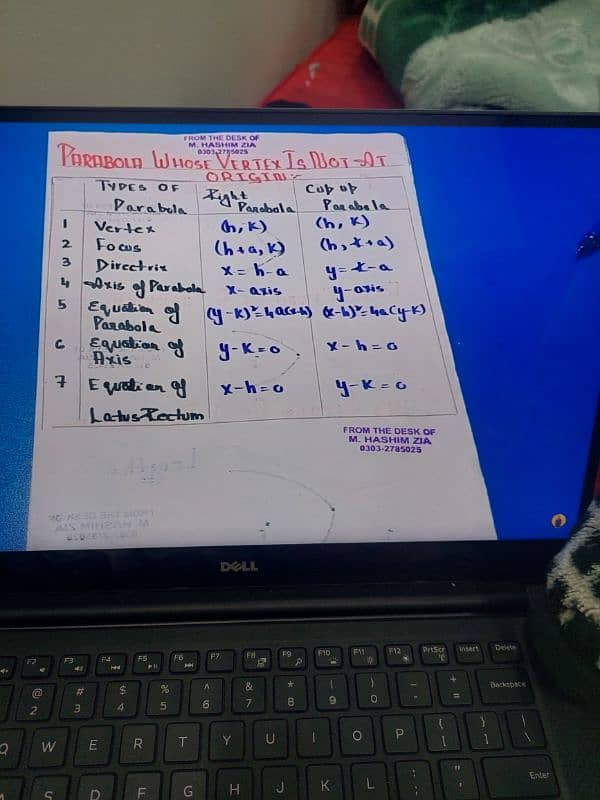 FROM THE DESK OF
M. HASHIM ZIA
0303-2785025
PARABOLA WHOSE VERTEX IS NOT AT
ORIGIN:-
TYPES OF Parabola
Right Parabola
Cup up Parabola
1 Vertex (h, K) (h, K)
2 Focus (h+a, K) (h, k+a)
3 Directrix x = h-a y = k-a
4 Axis of Parabola x-axis y-axis
5 Equation of Parabola (y-K)²=4a(x-h) (x-h)²=4a(y-K)
6 Equation of Axis y-K=0 x-h=0
7 Equation of Latus Rectum x-h=0 y-K=0
FROM THE DESK OF
M. HASHIM ZIA
0303-2785025
DELL
F2 F3 F4 F5 F6 F7 F8 F9 F10 F11 F12 PrtScr Insert Delete
@ # $ % ^ & * ( ) - + Backspace
2 3 4 5 6 7 8 9 0 =
Q W E R T Y U I O P { [ } ] | \
S D F G H J K L : ; " ' Enter